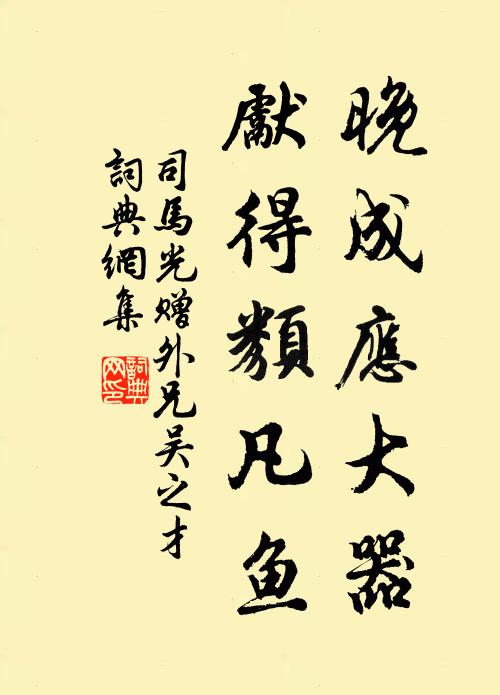 晚成應大器
獻得類凡鱼
司馬光赠外兄吴之才
詞典網集
詞典网印